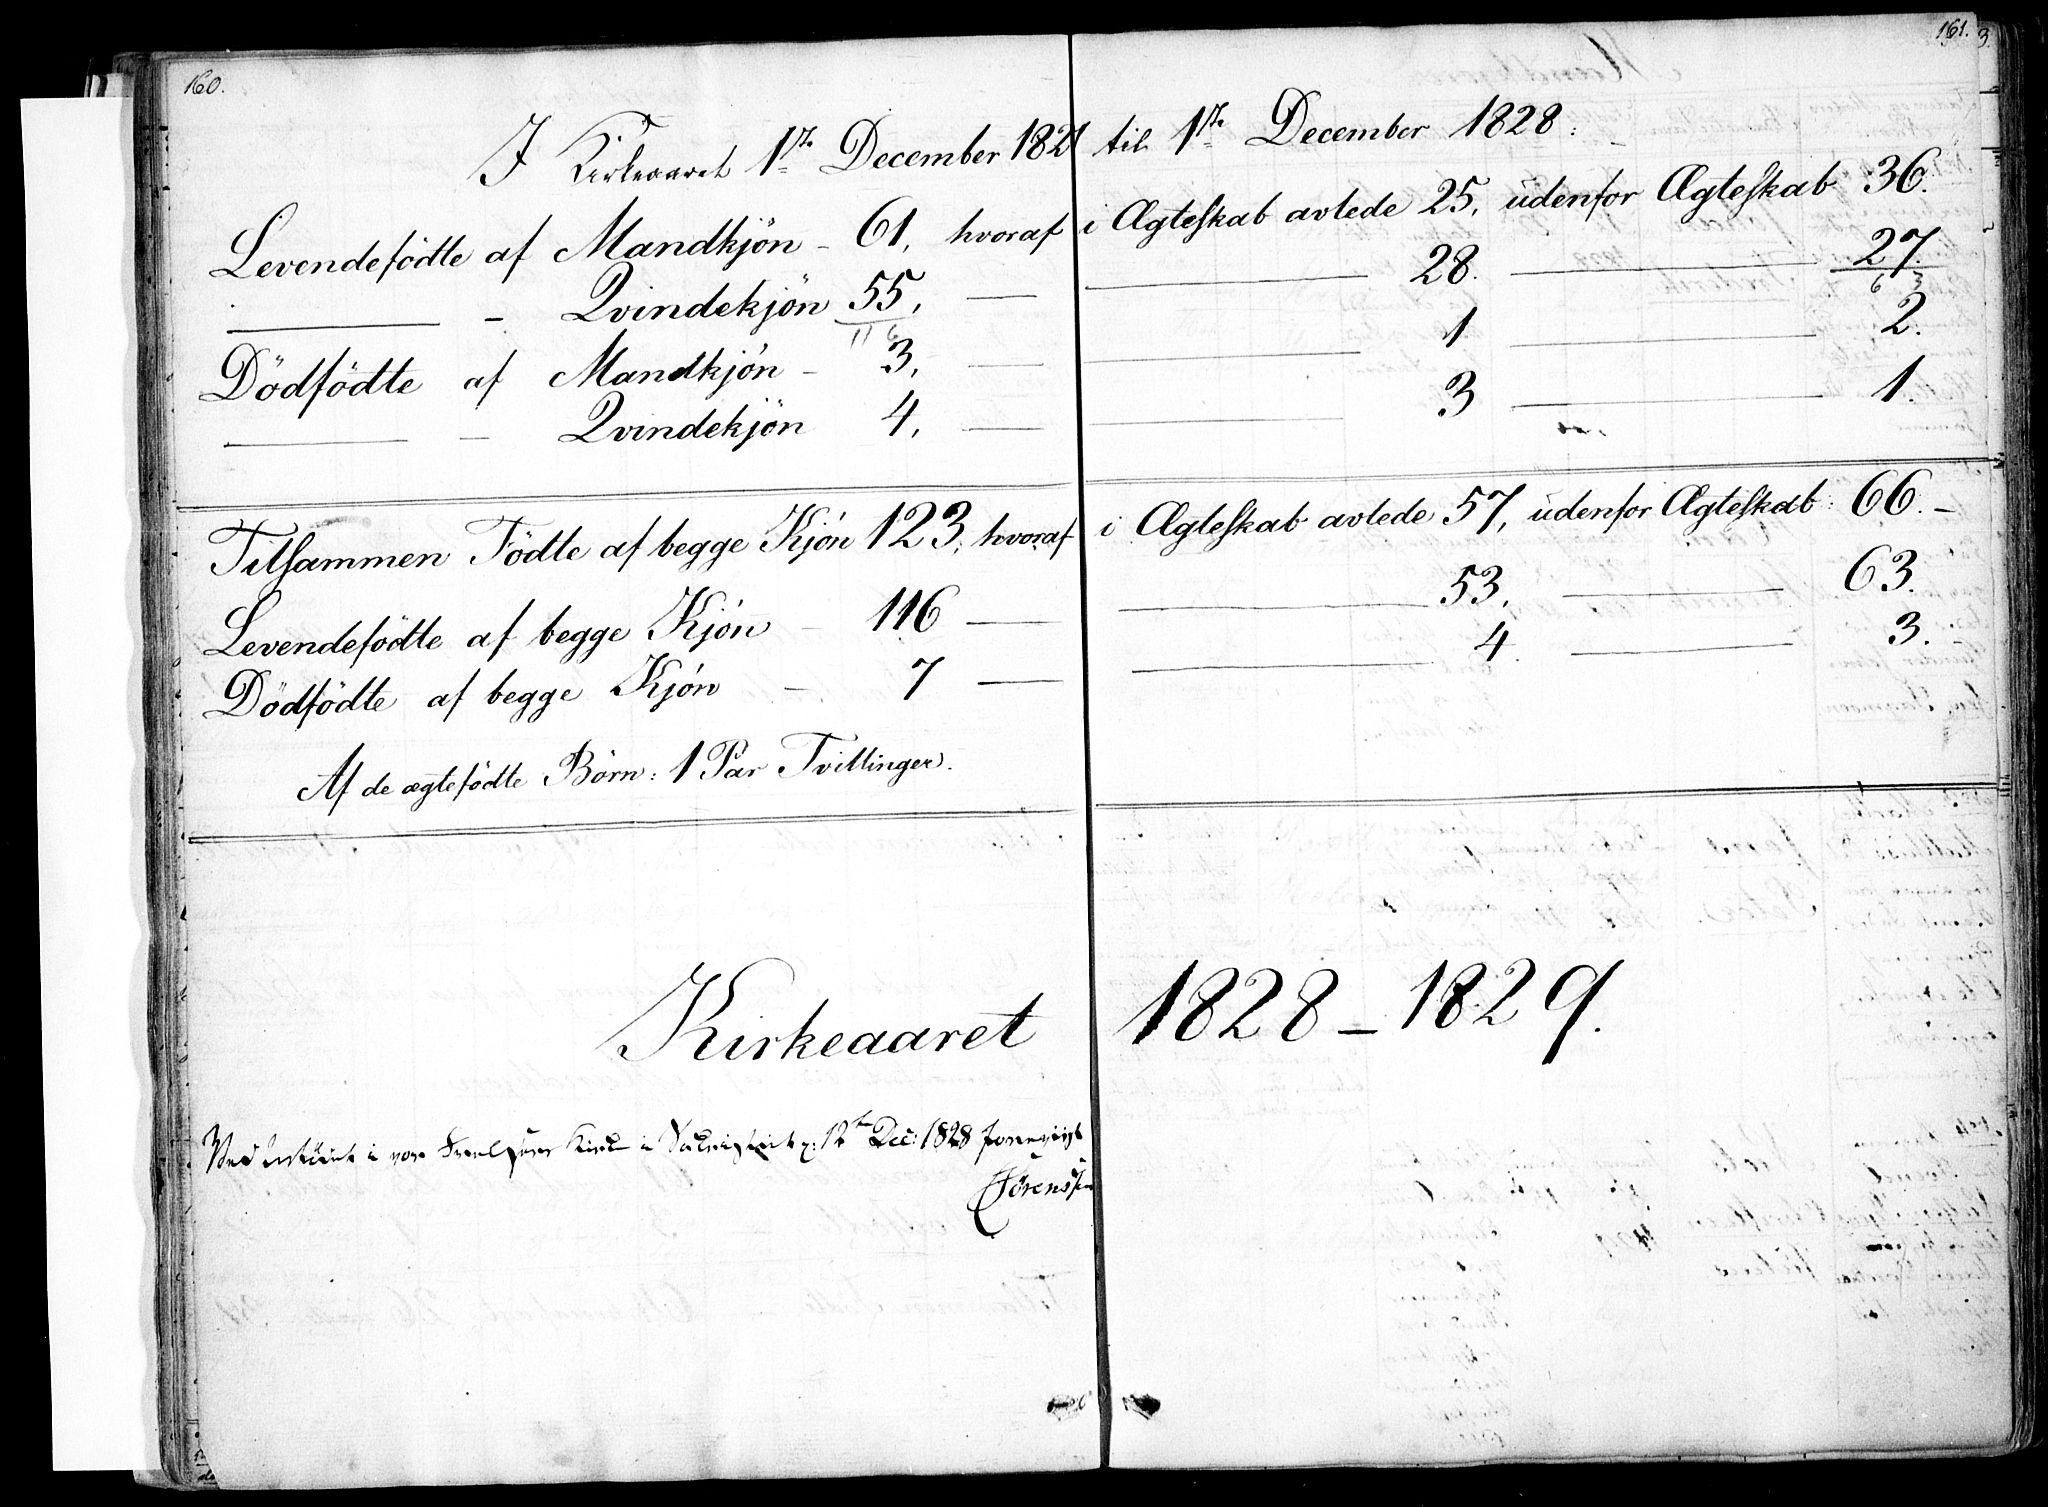 160.
161.
I Kirkeaaret 1ste December 1827 til 1ste December 1828:
Levendefödte af Mandkjön - 61, hvoraf i Ægteskab avlede 25, udenfor Ægteskab 36.
— - Qvindekjön 55, — — 28. — 27.
116 63
Dödfödte af Mandkjön - 3, — — 1 — 2.
— - Qvindekjön 4, — — 3 — 1.
Tilsammen Födte af begge Kjön 123, hvoraf i Ægteskab avlede 57, udenfor Ægteskab: 66. -
Levendefödte af begge Kjön - 116 — — 53, — 63.
Dödfödte af begge Kjön - 7 — — 4. — 3. -
Af de ægtefödte Börn: 1 Par Tvillinger.
Kirkeaaret 1828 - 1829.
Ved i vor Frelsers Kirke i 12te Dec: 1828
Sörenssen